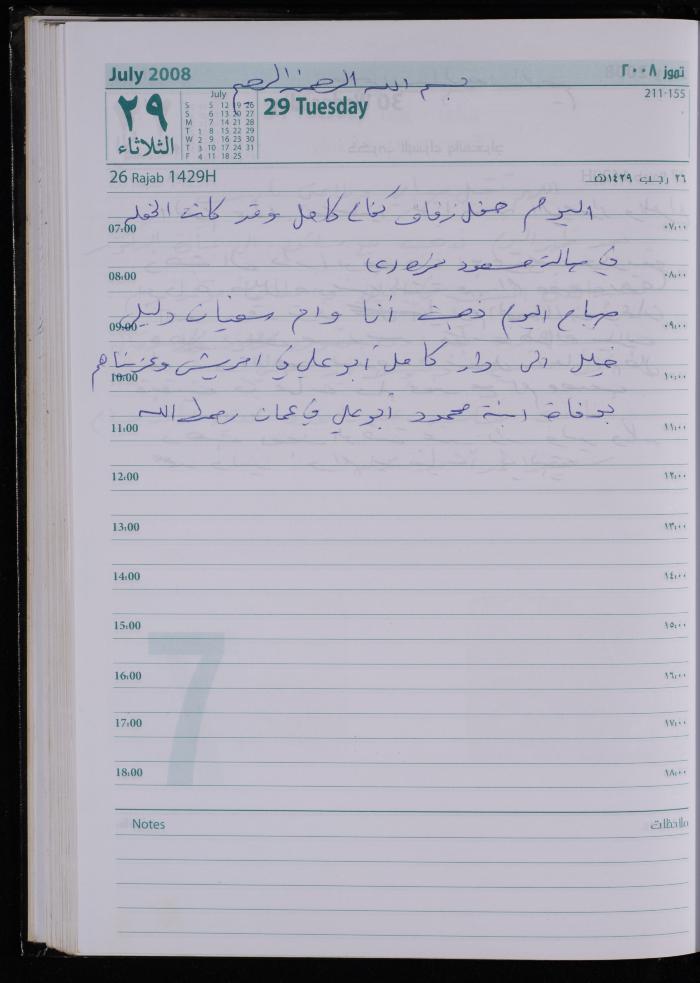 July 2008
تموز ٢٠٠٨
بسم الله الرحمن الرحيم
٢٩
الثلاثاء
July
S 5 12 19 26
S 6 13 20 27
M 7 14 21 28
T 1 8 15 22 29
W 2 9 16 23 30
T 3 10 17 24 31
F 4 11 18 25
29 Tuesday
211-155
26 Rajab 1429H
٢٦ رجب ١٤٢٩هـ
اليوم حفل زفاف كفاح كامل وقد كانت الحفلة
07:00 ٠٧:٠٠
في صالة مسعود
08:00 ٠٨:٠٠
صباح اليوم ذهبت أنا وام سفيان وليلى
09:00 ٠٩:٠٠
خليل الى دار كامل أبو علي في امريش وعزيناهم
10:00 ١٠:٠٠
بوفاة ابنة محمود أبو علي في عمان رحمها الله
11:00 ١١:٠٠
12:00 ١٢:٠٠
13:00 ١٣:٠٠
14:00 ١٤:٠٠
15:00 ١٥:٠٠
7
16:00 ١٦:٠٠
17:00 ١٧:٠٠
18:00 ١٨:٠٠
Notes ملاحظات